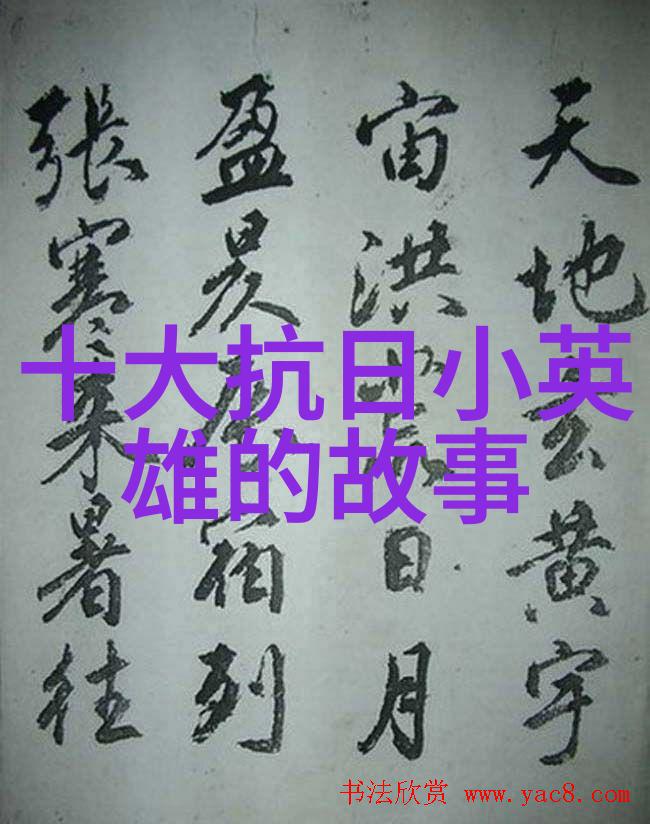 天地玄黄宇
宙洪荒日月
盈昃辰宿列
張寒来暑往
十大抗日小英
雄的故事
书法欣赏 www.yac8.com